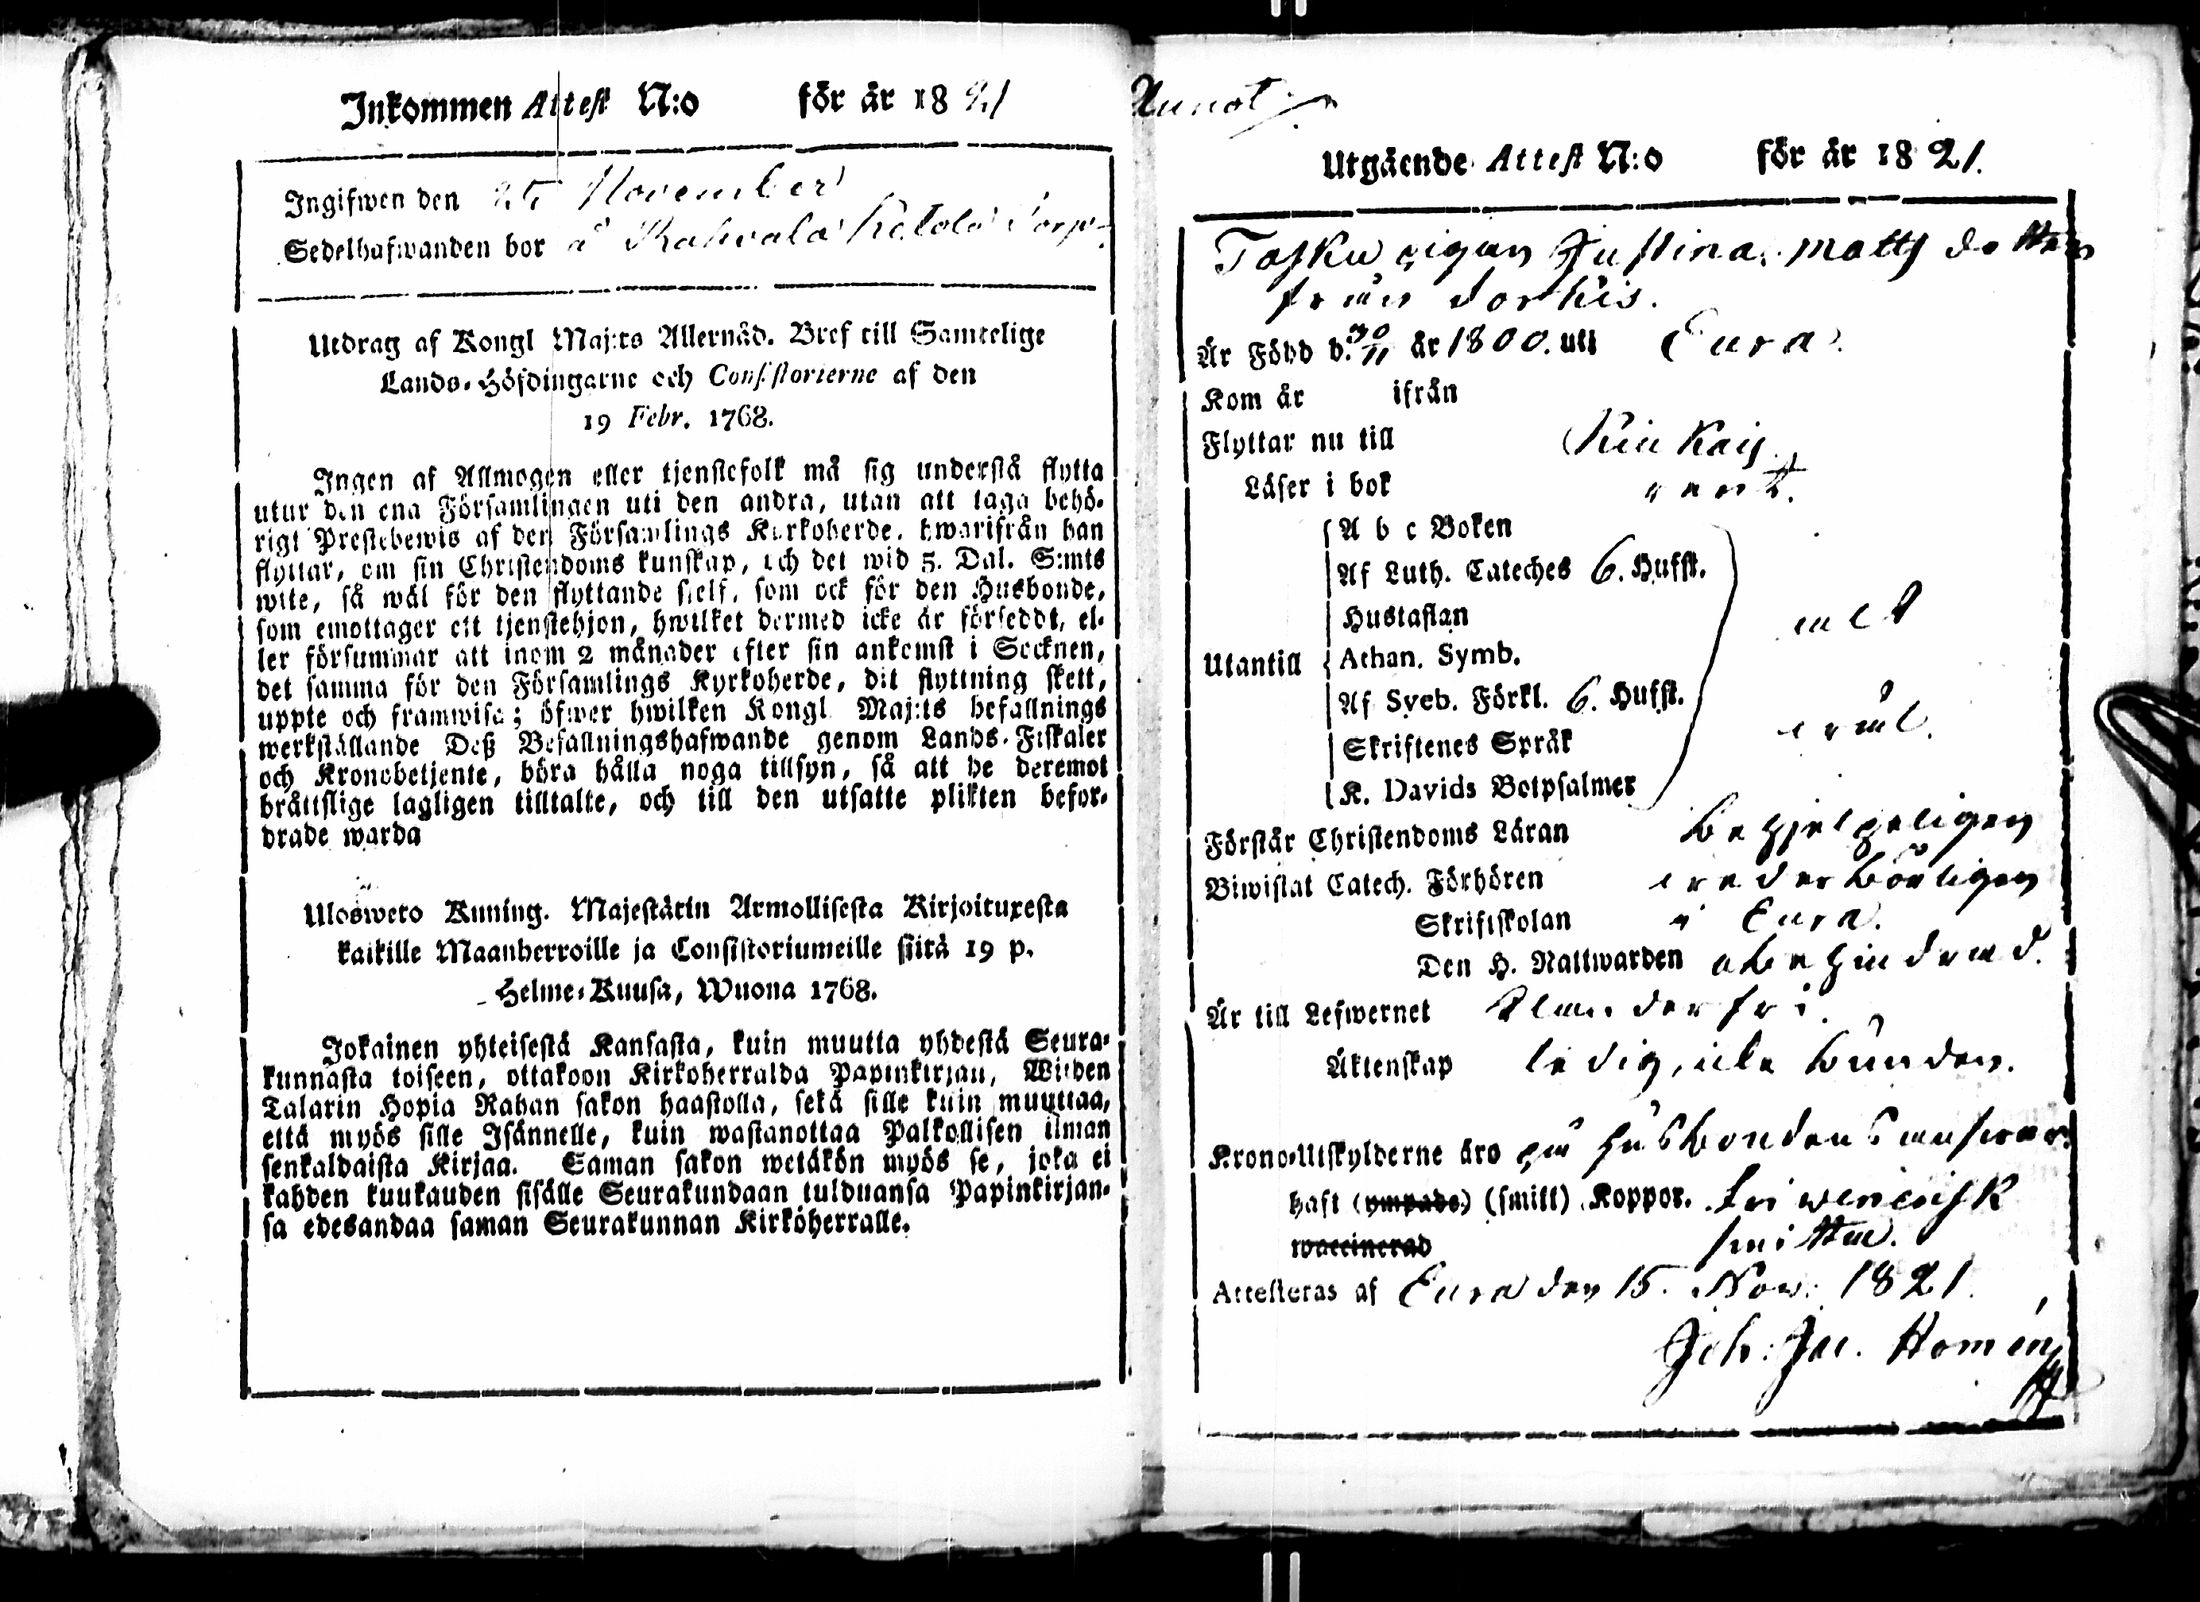 Inkommen Attest N:o för år 1821
Ingifwen den 25 November
Sedelhafwanden bor å Rahvala Ketola Torp
Utdrag af Kongl Maj:ts Allernåd. Bref till Samtelige
Lands-Höfdingarne och Consistorierne af den
19 Febr. 1768.
Ingen af Allmogen eller tjenstefolk må sig understå flytta
utur den ena Församlingen uti den andra, utan att taga behö-
rigt Prestebewis af den Församlings Kyrkoherde, hwarifrån han
flyttar, om sin Christendoms kunskap, och det wid 5. Dal. S:mts
wite, så wäl för den flyttande sielf, som ock för den Husbonde,
som emottager ett tjenstehjon, hwilket dermed icke är förseddt, el-
ler försummar att inom 2 månader efter sin ankomst i Socknen,
det samma för den Församlings Kyrkoherde, dit flyttning skett,
uppte och framwisa; öfwer hwilken Kongl Maj:ts befallnings
werkställande Deß Befallningshafwande genom Lands-Fiskaler
och Kronobetjente, böra hålla noga tillsyn, så att de deremot
bråttslige lagligen tilltalte, och till den utsatte plikten befor-
drade warda
Ulosweto Kuning. Majestärin Armollisesta Kirjoituxesta
kaikille Maanherroille ja Consistoriumeille siitä 19 p.
Helme-Kuusa, Wuona 1768.
Jokainen yhteisestä Kansasta, kuin muutta yhdestä Seura-
kunnasta toiseen, ottakoon Kirkoherralda Papinkirjan, Wiiden
Talarin Hopia Rahan sakon haastolla, sekä sille kuin muuttaa,
että myös sille Isännelle, kuin wastanottaa Palkollisen ilman
senkaldaista Kirjaa. Saman sakon wetäkön myös se, joka ei
kahden kuukauden sisälle Seurakundaan tulduansa Papinkirjan-
sa edesandaa saman Seurakunnan Kirköherralle.
Annot
Utgående Attest N:o för år 1821.
Tasku pigan Justina Matts dotter
från Sorkis.
Är Född d. 30/11 år 1800. uti Eura.
Kom år ifrån
Flyttar nu till Kiukais
Läser i bok rent.
A b c Boken
Af Luth. Cateches 6. Hufst.
Hustaflan
Utantill Athan. Symb.
Af Sveb. Förkl. 6. Hufst.
Skriftenes Språk
K. Davids Botpsalmer
Förstår Christendoms Läran behjelpeligen
Biwistat Catech. Förhören
Skriftskolan i Eura.
Den H. Nattwarden obehindrad.
Är till Lefwernet
Äktenskap ledig, icke bunden.
Krono-Utskylderne äro på husbondens answar.
haft (ympade) (smitt) Koppor. fri venerisk
waccinerad smitta.
Attesteras af Eura den 15. Nov: 1821.
Joh: Jac.